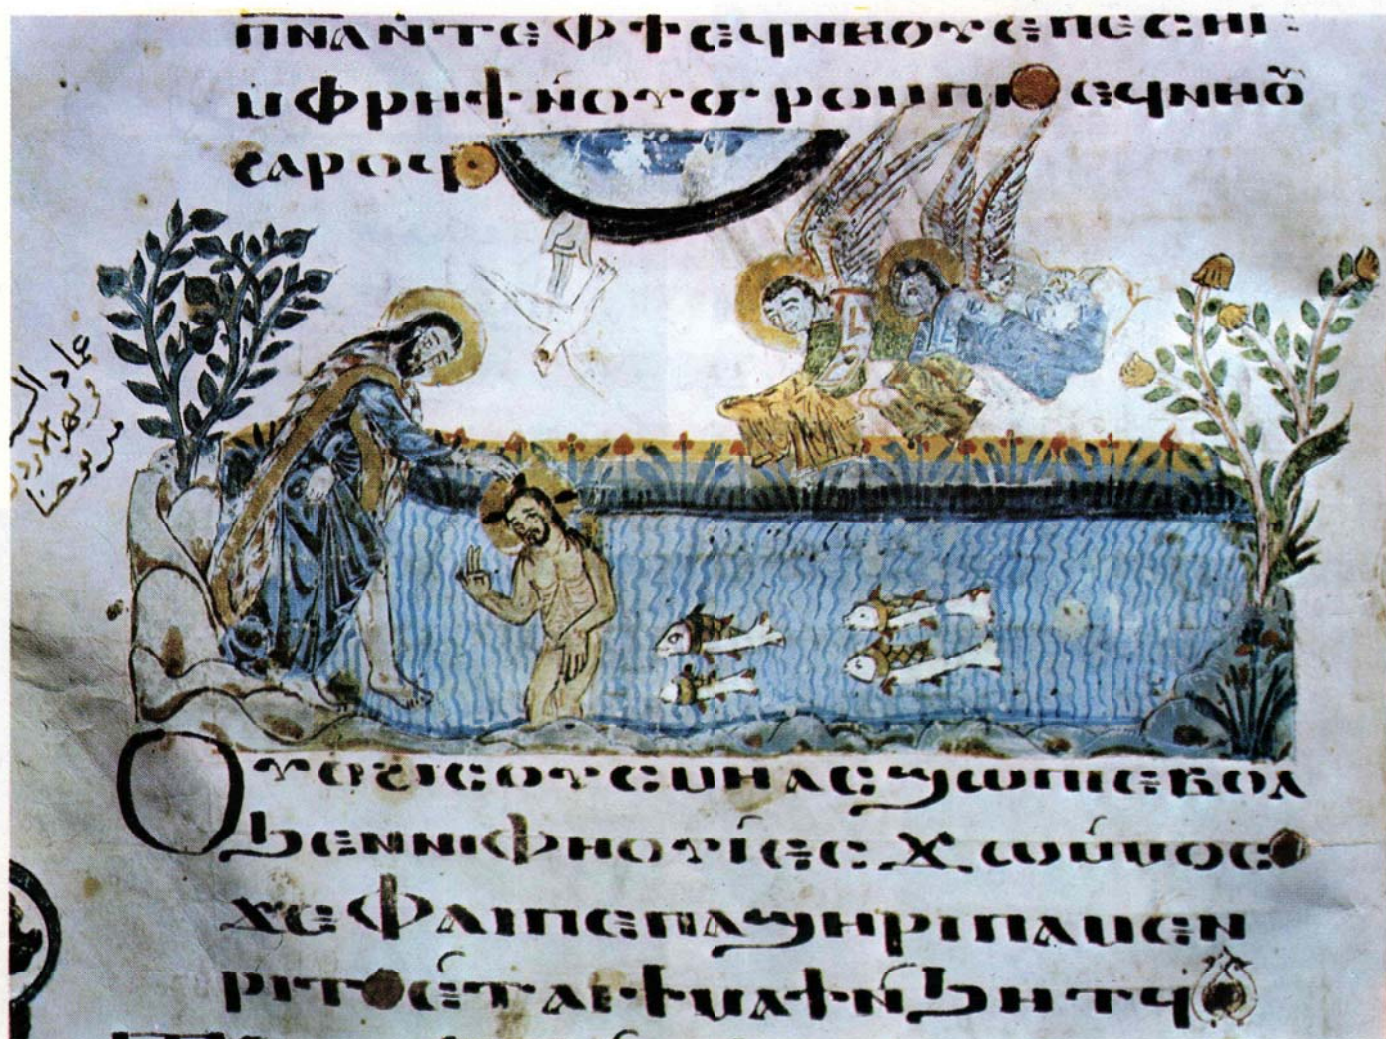 ⲡⲛⲁⲛ̀ⲧⲉⲫϯⲉϥⲛⲏⲟⲩⲉⲡⲉⲥⲏⲧ:
ⲙⲫⲣⲏϯⲛ̀ⲟⲩϭⲣⲟⲙⲡⲓ ⲉϥⲛⲏⲟⲩ
ϩⲁⲣⲟϥ
ⲟⲩⲟϩⲓⲥⲟⲩⲥⲙⲏⲁⲥϣⲱⲡⲓⲉⲃⲟⲗ
ϧⲉⲛⲛⲓⲫⲏⲟⲩⲓ̀ⲉⲥϫⲱⲙ̀ⲙⲟⲥ
ϫⲉⲫⲁⲓⲡⲉⲡⲁϣⲏⲣⲓⲡⲁⲙⲉⲛ
ⲣⲓⲧ ⲉ̀ⲧⲁⲉϯⲙⲁϯⲛ̀ϧⲏⲧϥ
عماد
من يوحنا